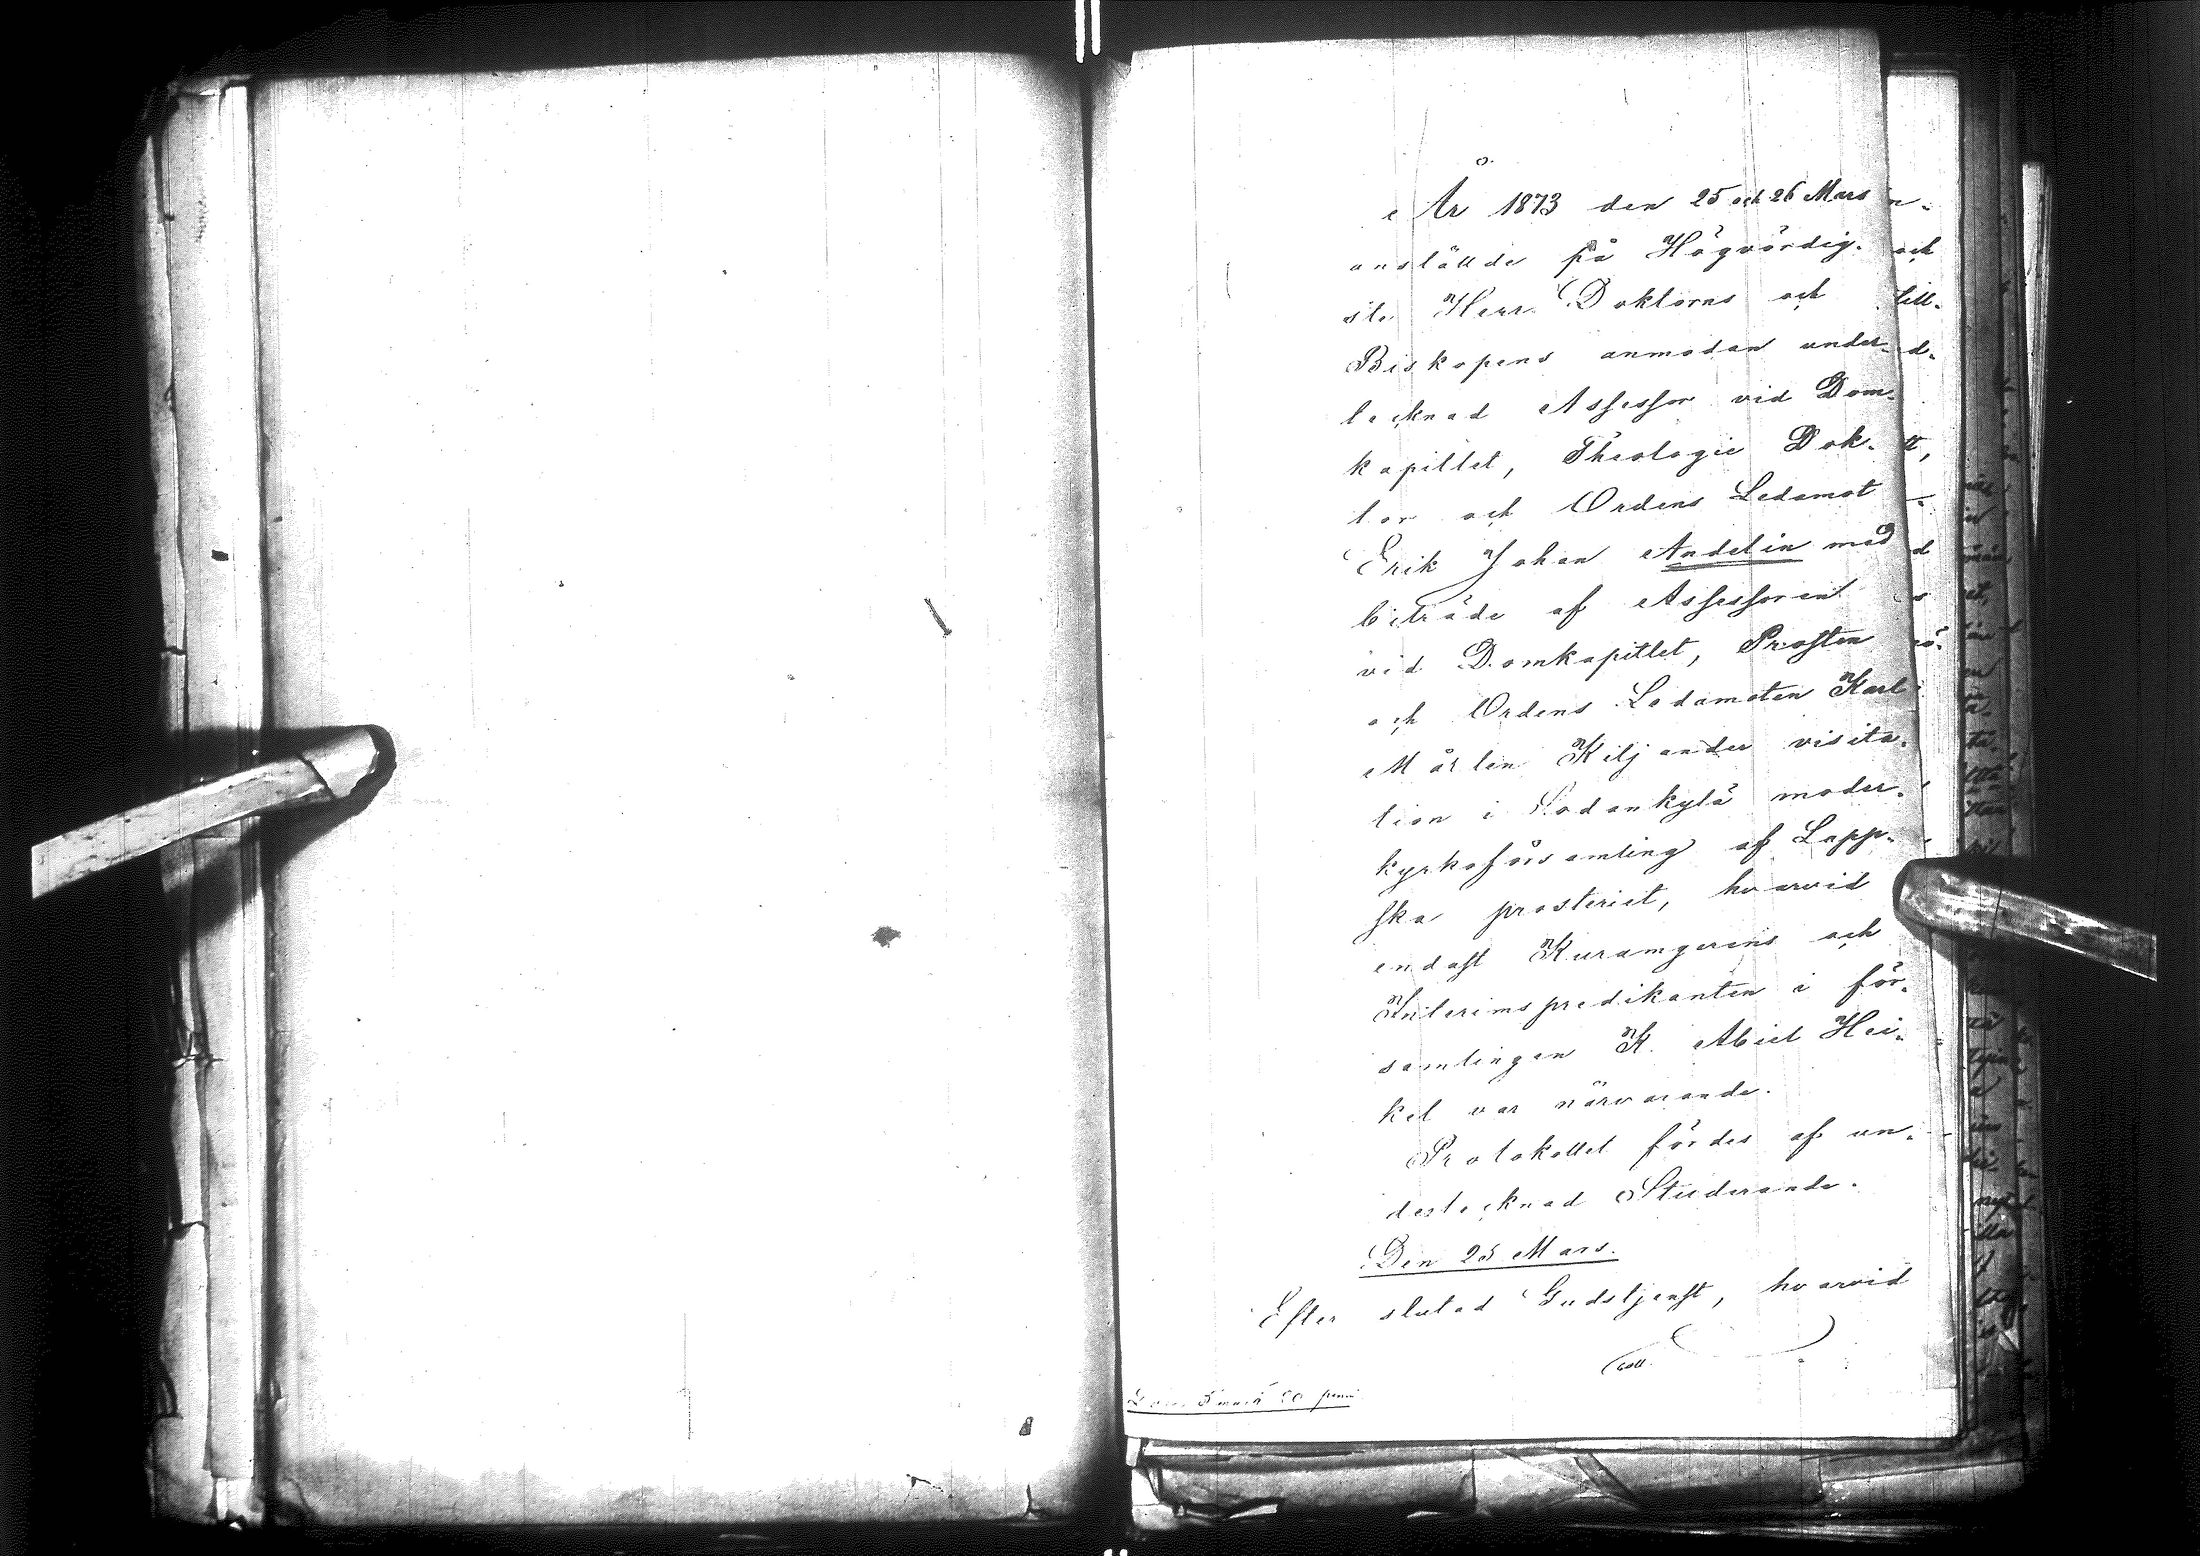 År 1873 den 25 och 26 Mars
anställde på Högvördig-
ste Herr Doktorns och
Biskopens anmodan under-
tecknad Assessor vid Dom-
kapitlet, Theologie Dok-
tor och Ordens Ledamot
Erik Johan Andelin med
biträde af Assessoren
vid Domkapitlet, Prosten
och Ordens Ledamoten Karl
Mårten Kiljander visita-
tion i Sodankylä moder-
kyrkoförsamling af Lapp-
ska prosteriet, hvarvid
endast Kuramgerens och
Interimspredikanten i för-
samlingen K. Abiel Hei-
kel var närvarande.
Protokollet fördes af un-
dertecknad Studerande.
Den 25 Mars.
Efter slutad Gudstjenst, hvarvid
coll.
penni